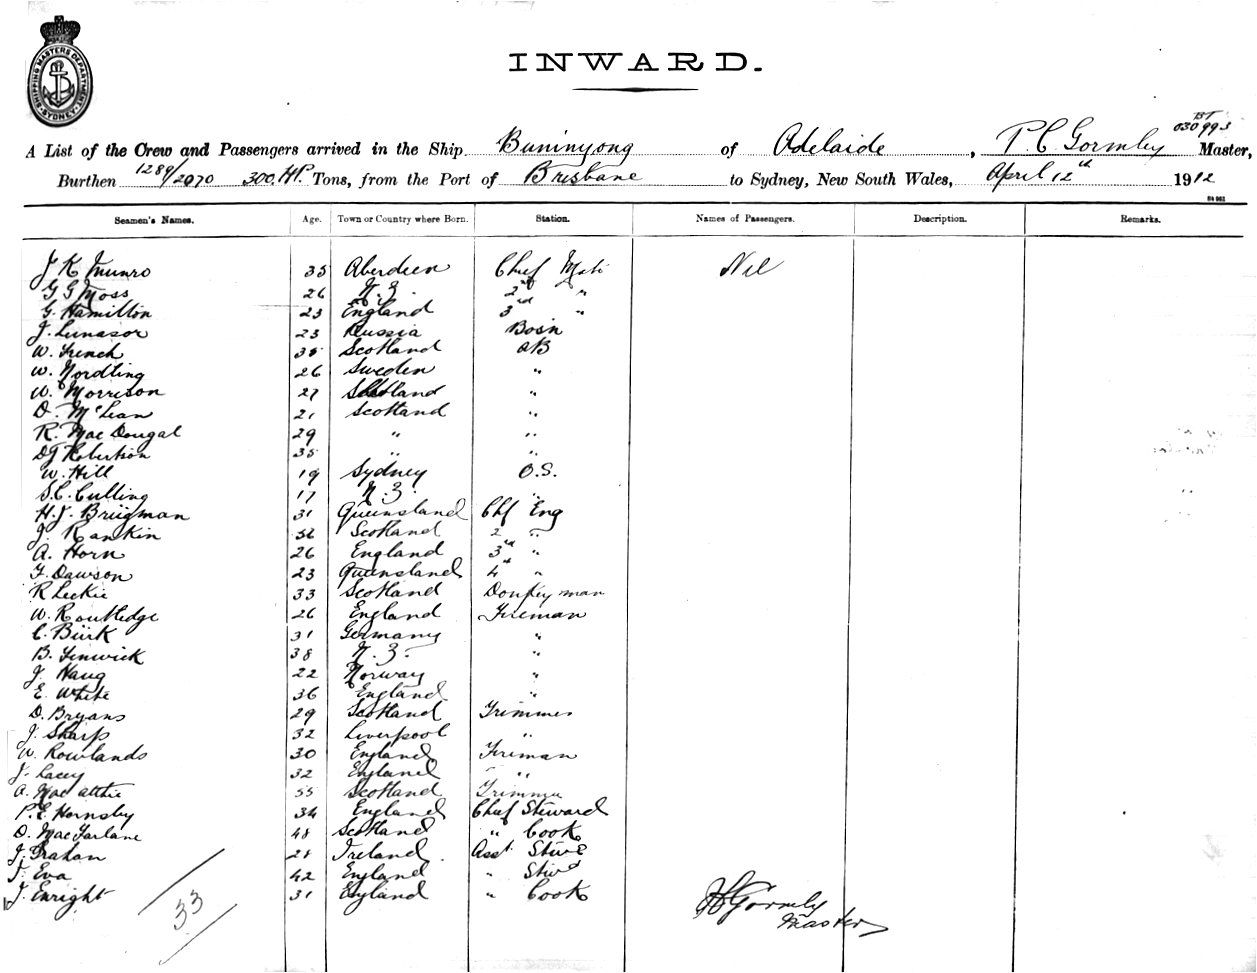 SHIPPING MASTERS DEPARTMENT SYDNEY
INWARD.
BT
03099 3
A List of the Crew and Passengers arrived in the Ship Buninyong of Adelaide, P. C. Gormley Master,
Burthen 1289/2070 300. HP. Tons, from the Port of Brisbane to Sydney, New South Wales, April 12th 1912
Seamen's Names. Age. Town or Country where Born. Station. Names of Passengers. Description. Remarks.
J K Munro 35 Aberdeen Chief Mate Nil
G G Moss 26 N. Z. 2nd "
G. Hamilton 23 England 3rd "
J. Lunasor 23 Russia Bosn
W. French 35 Scotland AB
W. Nordling 26 Sweden "
W. Morrison 27 Scotland "
D. McLean 21 Scotland "
R. MacDougal 29 " "
DJ Robertson 35 " "
W. Hill 19 Sydney O.S.
S.C. Culling 17 N. Z. "
H.J. Brugman 31 Queensland Chf Eng
J. Rankin 32 Scotland 2 "
A. Horn 26 England 3rd "
F. Dawson 23 Queensland 4th "
R Leckie 33 Scotland Donkeyman
W. Routledge 26 England Fireman
C. Bürk 31 Germany "
B. Fenwick 38 N. Z. "
J. Haug 22 Norway "
E. White 36 England "
D. Bryans 29 Scotland Trimmer
J. Sharp 32 Liverpool "
W. Rowlands 30 England Fireman
J. Lacey 32 England "
A. Mac atthie 55 Scotland Trimmer
P.E. Hornsby 34 England Chief Steward
D. MacFarlane 48 Scotland " Cook
J. Grahan 28 Ireland Asst Stwd
J. Eva 42 England " Stwd
J. Enright 31 England " Cook
33
Gormley
Master